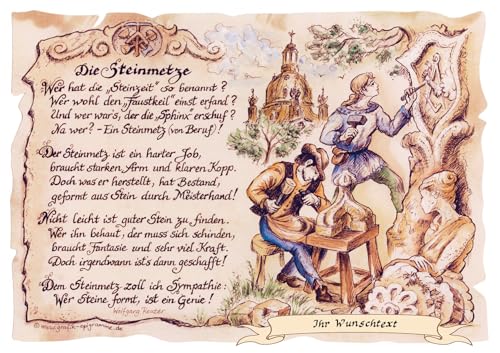 Die Steinmetze
Wer hat die „Steinzeit" so benannt?
Wer wohl den „Faustkeil" einst erfand?
Und wer war's, der die „Sphinx" erschuf?
Na wer? - Ein Steinmetz (von Beruf)!
Der Steinmetz ist ein harter Job,
braucht starken Arm und klaren Kopp.
Doch was er herstellt, hat Bestand,
geformt aus Stein durch Meisterhand!
Nicht leicht ist guter Stein zu finden.
Wer ihn behaut, der muss sich schinden,
braucht Fantasie und sehr viel Kraft.
Doch irgendwann ists dann geschafft!
Dem Steinmetz zoll ich Sympathie:
Wer Steine formt, ist ein Genie!
Wolfgang Reuter
© www.grafik-epigramme.de
Ihr Wunschtext